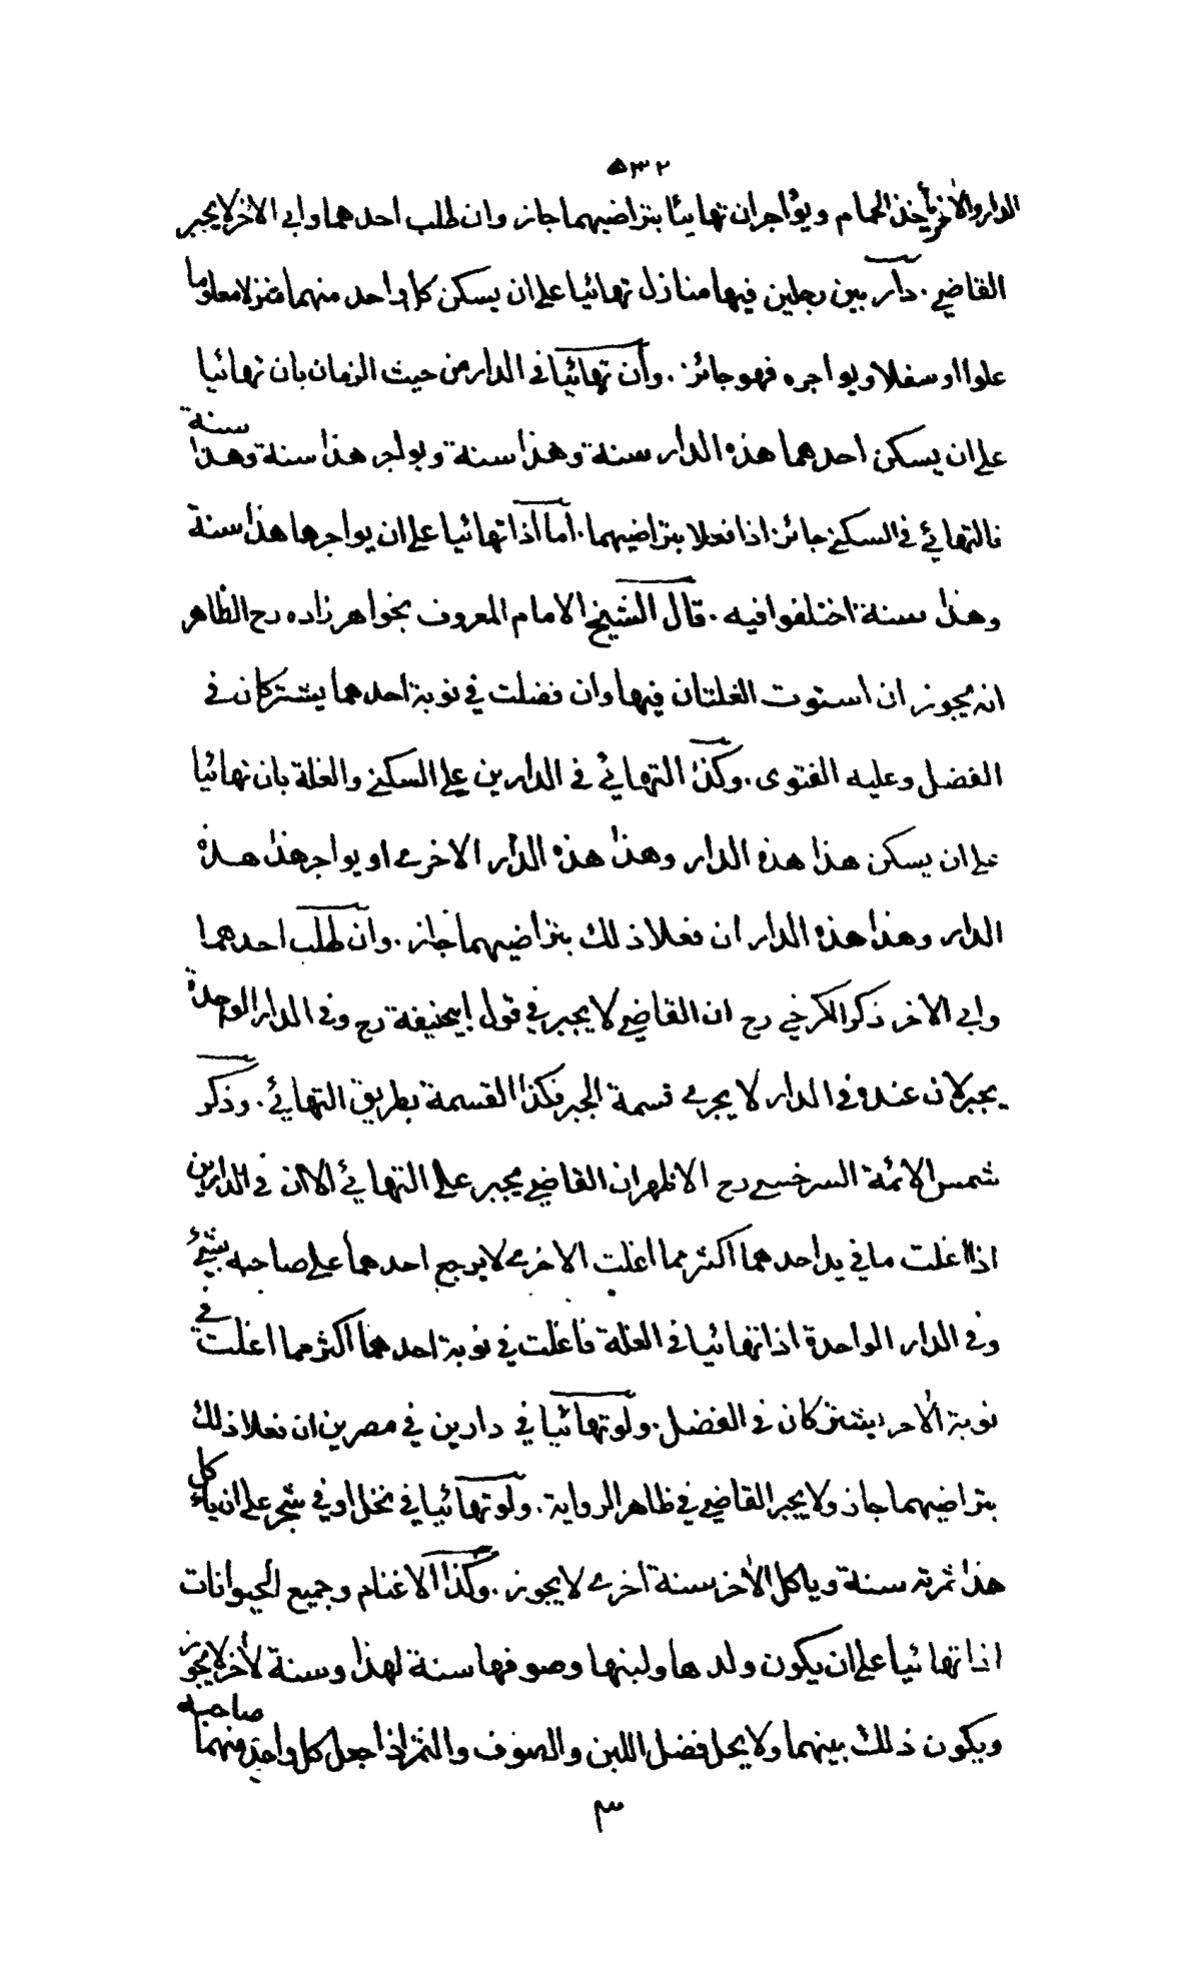 ٥٣٢
الدار والاخر يأخذ الحمام ويؤاجران تهايئا بتراضيهما جاز وان طلب احدهما وابى الاخر لا يجبر
القاضي . دار بين رجلين فيها منازل تهائيا على ان يسكن كل واحد منهما منزلا معلوما
علوا او سفلا ويواجره فهو جائز . وان تهائيا في الدار من حيث الزمان بان تهائيا
على ان يسكن احدهما هذه الدار سنة وهذا سنة ويواجر هذا سنة وهذا سنة
فالتهائي في السكنى جائز اذا فعلا بتراضيهما . اما اذا تهائيا على ان يواجرها هذا سنة
وهذا سنة اختلفوا فيه . قال الشيخ الامام المعروف بخواهر زاده رح الظاهر
انه يجوز ان استوت الغلتان فيها وان فضلت في نوبة احدهما يشتركان في
الفضل وعليه الفتوى . وكذا التهائي في الدارين على السكنى والغلة بان تهائيا
على ان يسكن هذا هذه الدار وهذا هذه الدار الاخرى او يواجر هذا هذه
الدار وهذا هذه الدار ان فعلا ذلك بتراضيهما جاز . وان طلب احدهما
وابى الاخر ذكر الكرخي رح ان القاضي لا يجبر في قول ابيحنيفة رح وفي الدار الواحدة
يجبر لان عنده في الدار لا يجرى قسمة الجبر فكذا القسمة بطريق التهائي . وذكر
شمس الائمة السرخسي رح الاظهر ان القاضي يجبر على التهائي الا ان في الدارين
اذا اغلت ما في يد احدهما اكثر مما اغلت الاخرى لا يرجع احدهما على صاحبه بشيء
وفي الدار الواحدة اذا تهائيا في الغلة فاغلت في نوبة احدهما اكثر مما اغلت في
نوبة الاخر يشتركان في الفضل . ولو تهائيا في دارين في مصرين ان فعلا ذلك
بتراضيهما جاز ولا يجبر القاضي في ظاهر الرواية . ولو تهائيا في نخل او في شجر على ان ياء كل
هذا ثمرته سنة وياكل الاخر سنة اخرى لا يجوز . وكذا الاغنام وجميع الحيوانات
اذا تهائيا على ان يكون ولدها ولبنها وصوفها سنة لهذا وسنة لأخر لا يجوز
ويكون ذلك بينهما ولا يحل فضل اللبن والصوف والثمر اذا جعل كل واحد منهما صاحبه
٣